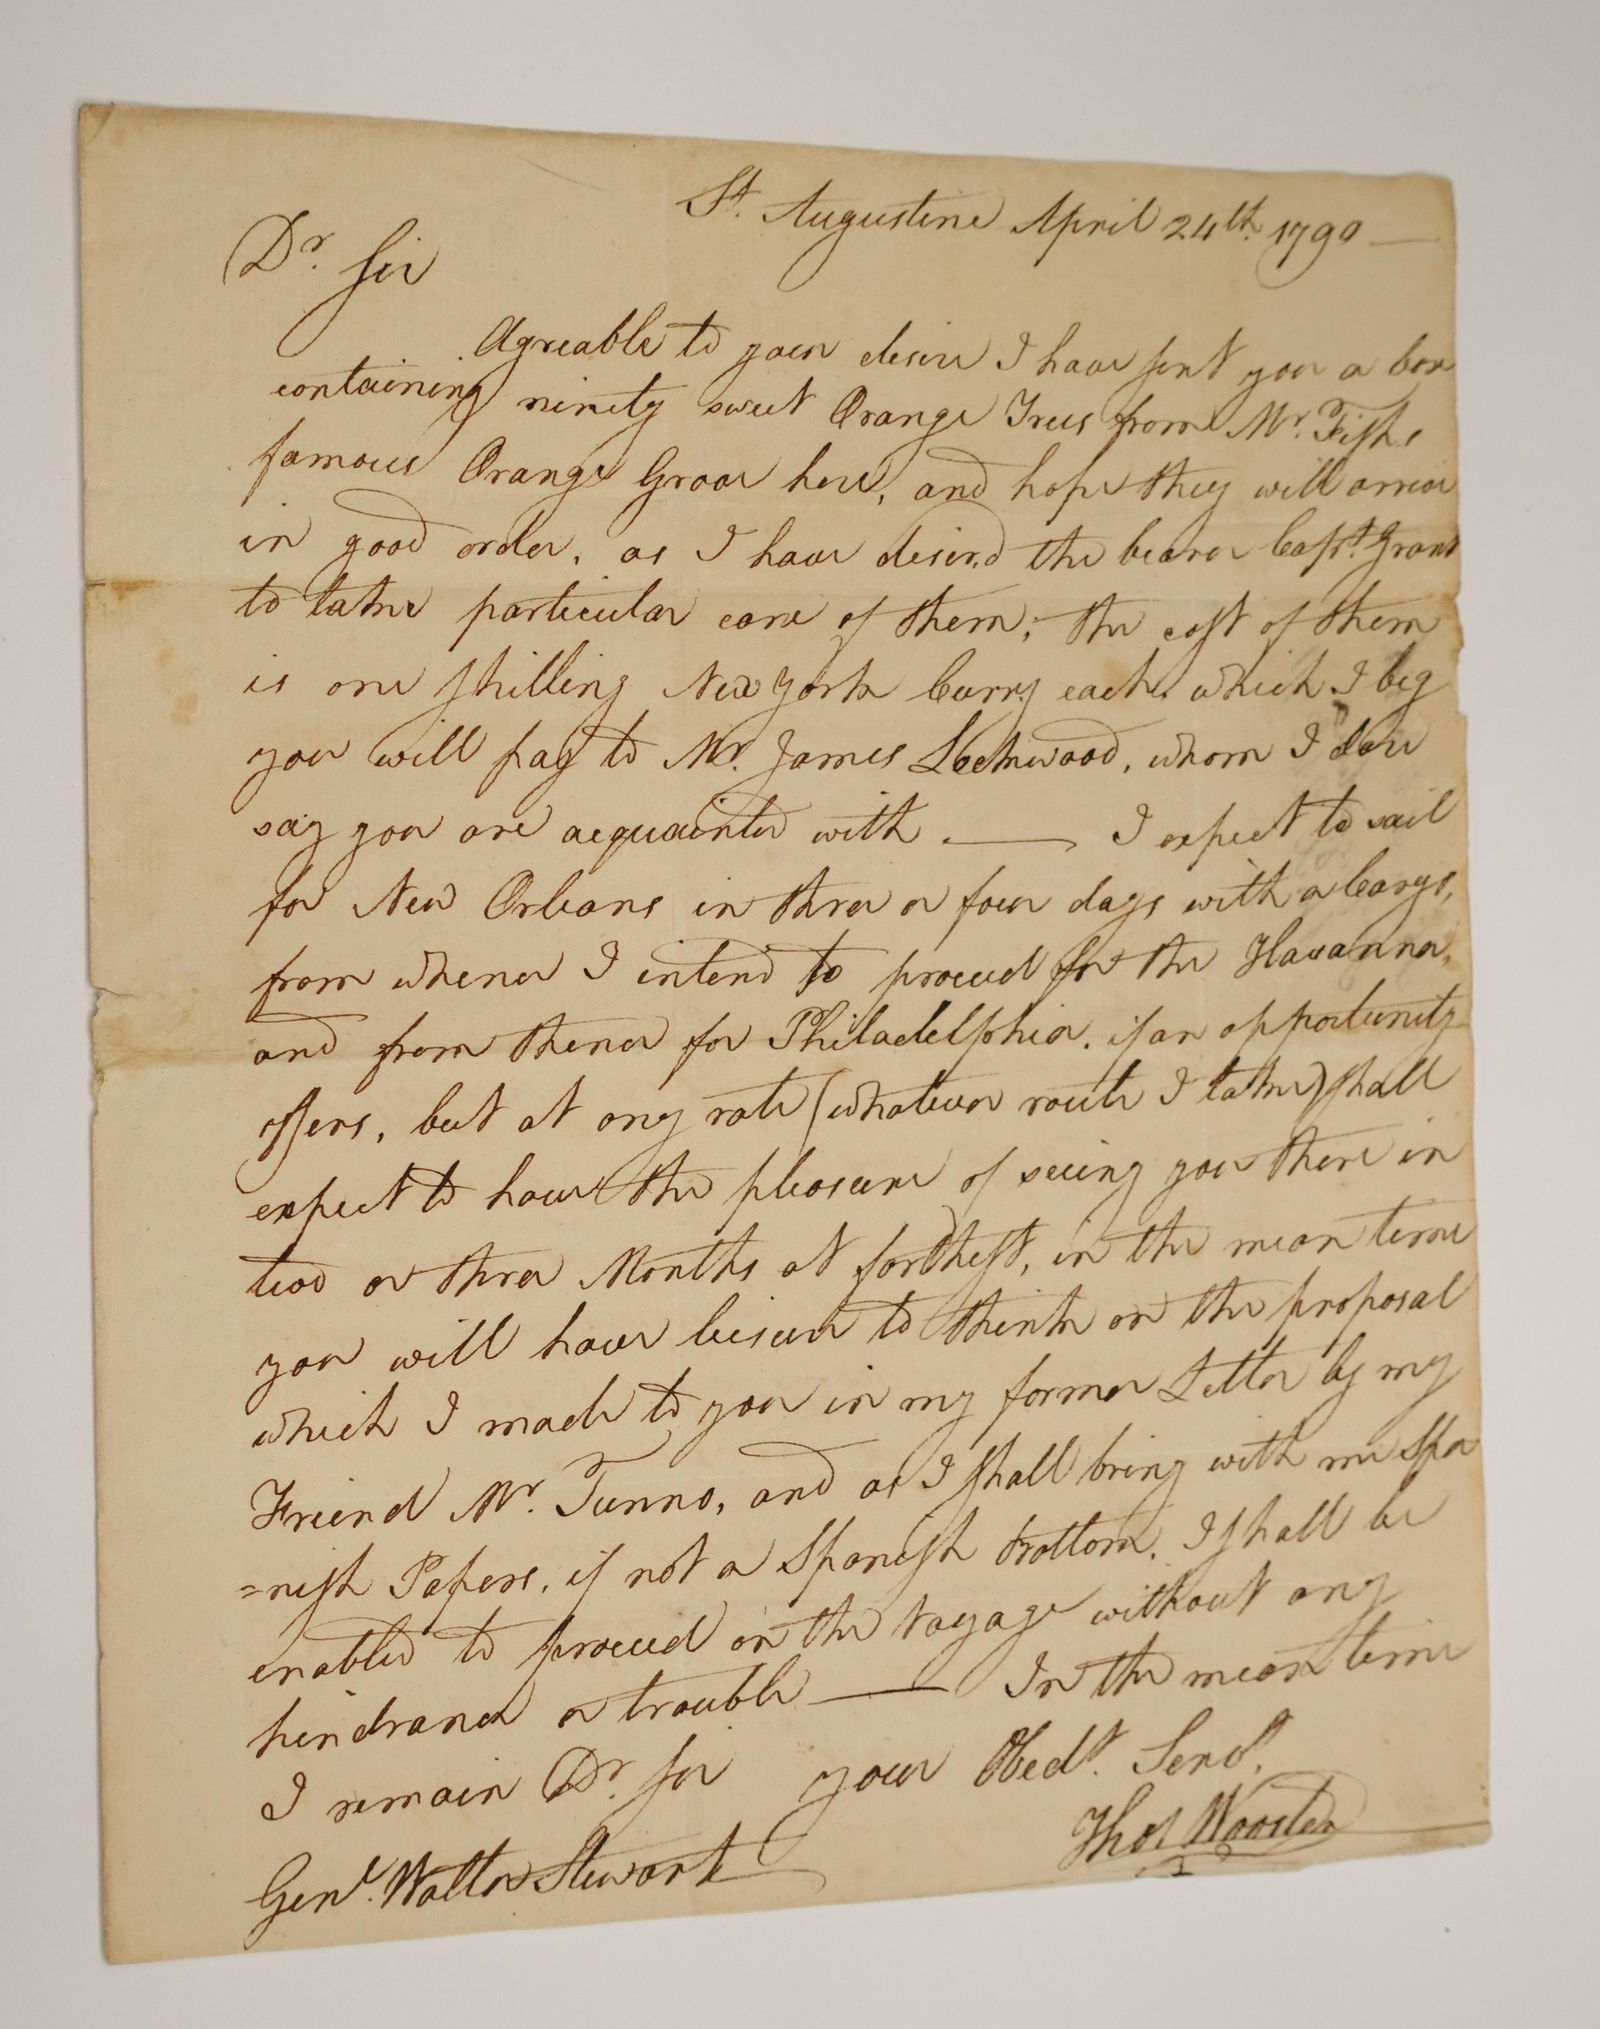 St. Augustine April 24th. 1790 —
Dr. Sir
Agreable to your desire I have sent you a box
containing ninety sweet Orange Trees from Mr. Fishs
famous Orange Grove here, and hope they will arrive
in good order, as I have desired the bearer Capt. Grant
to take particular care of them; the cost of them
is one shilling New York Curry. each, which I beg
you will pay to Mr. James Leckwood, whom I dare
say you are acquainted with. — I expect to sail
for New Orleans in three or four days with a Cargo,
from whence I intend to proceed for the Havanna,
and from thence for Philadelphia, if an opportunity
offers, but at any rate (whatever route I take) shall
expect to have the pleasure of seeing you there in
two or three Months at farthest, in the mean time
you will have leisure to think on the proposal
which I made to you in my former Letter by my
Friend Mr. Tunno, and as I shall bring with me Spa
=nish Papers, if not a Spanish Bottom, I shall be
enabled to proceed on the Voyage without any
hindrance or trouble — In the mean time
I remain Dr. Sir your Obedt. Servt.
Thos Wooster
Genl. Walter Stewart